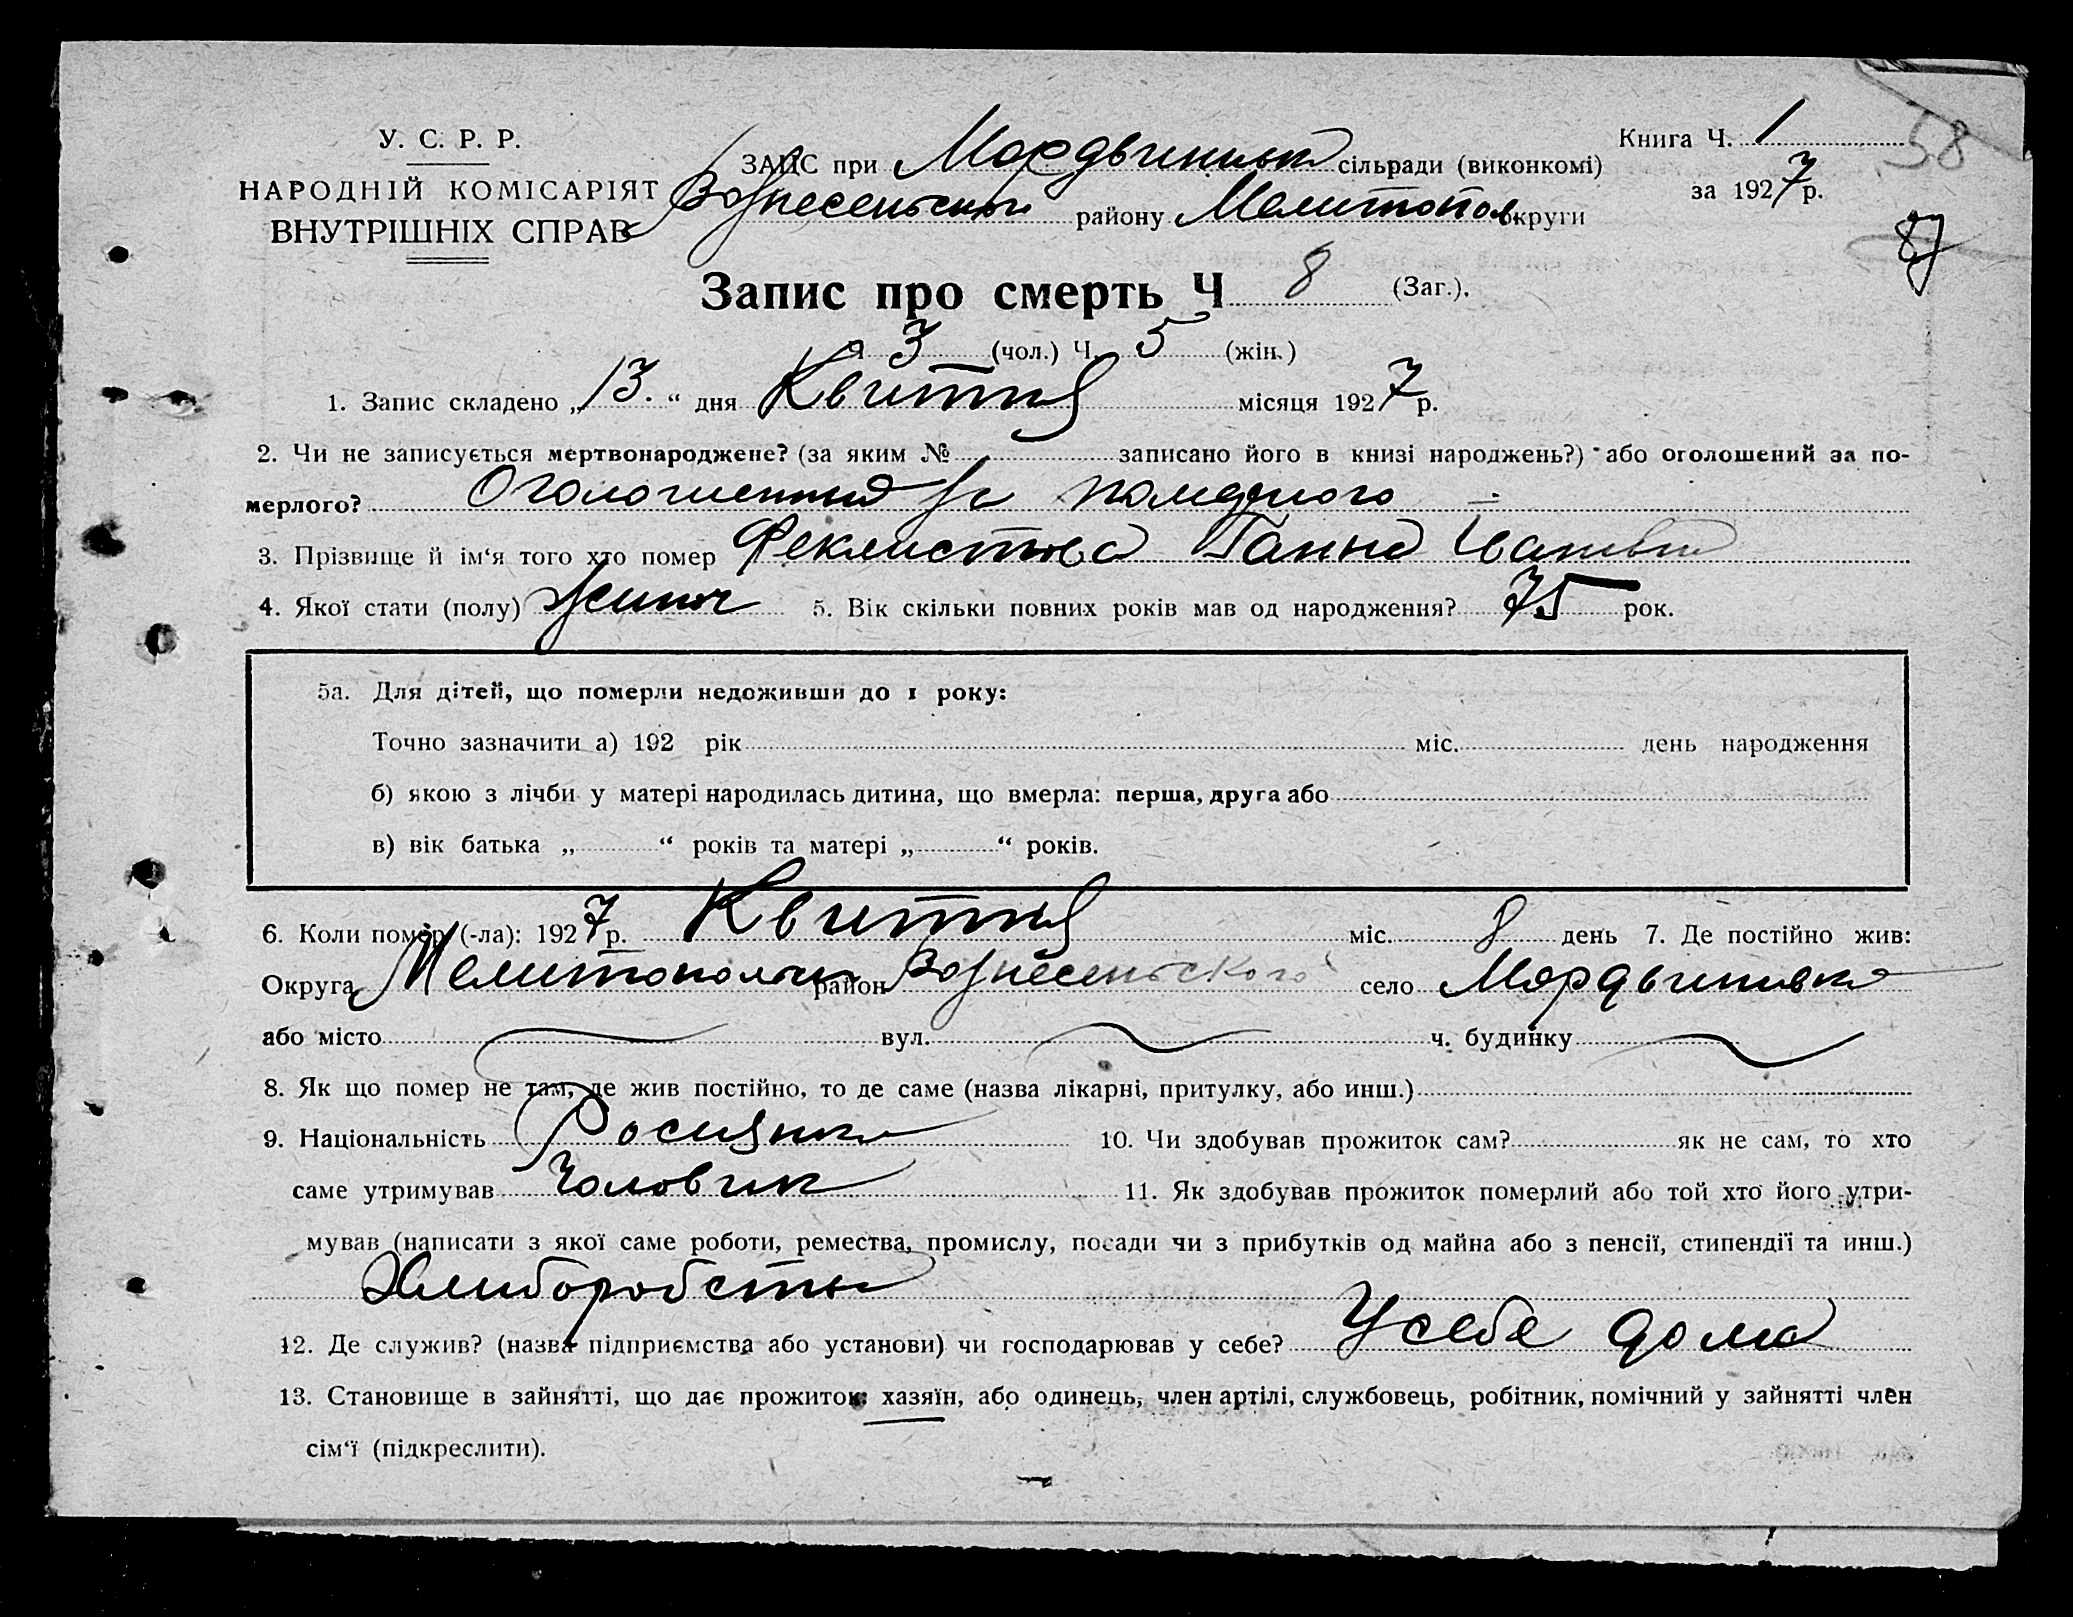 У. С. Р. Р.
НАРОДНІЙ КОМІСАРІЯТ
ВНУТРІШНІХ СПРАВ
ЗАГС при Мордвиньк сільради (виконкомі)
Вознесенськ району Мелитопол округи
Книга Ч. 1
58
за 1927 р.
87
Запис про смерть Ч 8 (Заг.).
Ч 3 (чол.) Ч. 5 (жін.)
1. Запис складено „13.“ дня Квитня місяця 1927 р.
2. Чи не записується мертвонароджене? (за яким № записано його в книзі народжень?) або оголошений за по-
мерлого? за
3. Прізвище й ім‘я того хто помер Феклистова Ганна
4. Якої стати (полу) жиноч 5. Вік скільки повних років мав од народження? 75 рок.
5а. Для дітей, що померли недоживши до 1 року:
Точно зазначити а) 192 рік міс. день народження
б) якою з лічби у матері народилась дитина, що вмерла: перша, друга або
в) вік батька „ “ років та матері „ “ років.
6. Коли помер (-ла): 1927 р. Квитня міс. 8 день 7. Де постійно жив:
Округа район Вознесеньского село Мордвинивка
або місто вул. ч. будинку
8. Як що помер не там, де жив постійно, то де саме (назва лікарні, притулку, або инш.)
9. Національність Росиянка 10. Чи здобував прожиток сам? як не сам, то хто
саме утримував Чоловик 11. Як здобував прожиток померлий або той хто його утри-
мував (написати з якої саме роботи, ремества, промислу, посади чи з прибутків од майна або з пенсії, стипендії та инш.)
Хлиборобство
12. Де служив? (назва підприємства або установи) чи господарював у себе? У себе дома
13. Становище в зайнятті, що дає прожиток: хазяїн, або одинець, член артілі, службовець, робітник, помічний у зайнятті член
сім‘ї (підкреслити).